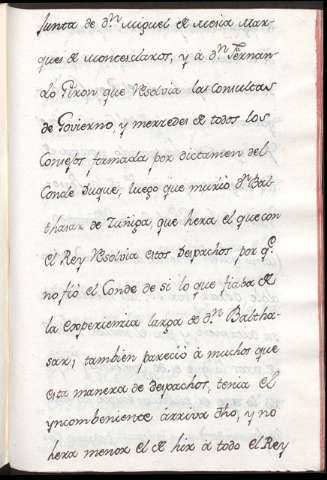 Junta de dⁿ Miguel de Mexia Mar-
ques de Montesclaros, y à dⁿ Fernan-
do Giron que resolvia las consultas
de Govierno, y merzedes de todos los
Consejos formada por dictamen del
Conde Duque, luego que murio dⁿ Bal-
thasar de Zuñiga, que hera el que con
el Rey resolvia estos Despachos por qᵉ
no fió el Conde de si lo que fiaba de
la experienzia larga de dⁿ Baltha-
sar; tambien pareció à muchos que
esta manera de despachos, tenia el
ynconbeniente arriva dho, y no
hera menor el de hir à todo el Rey